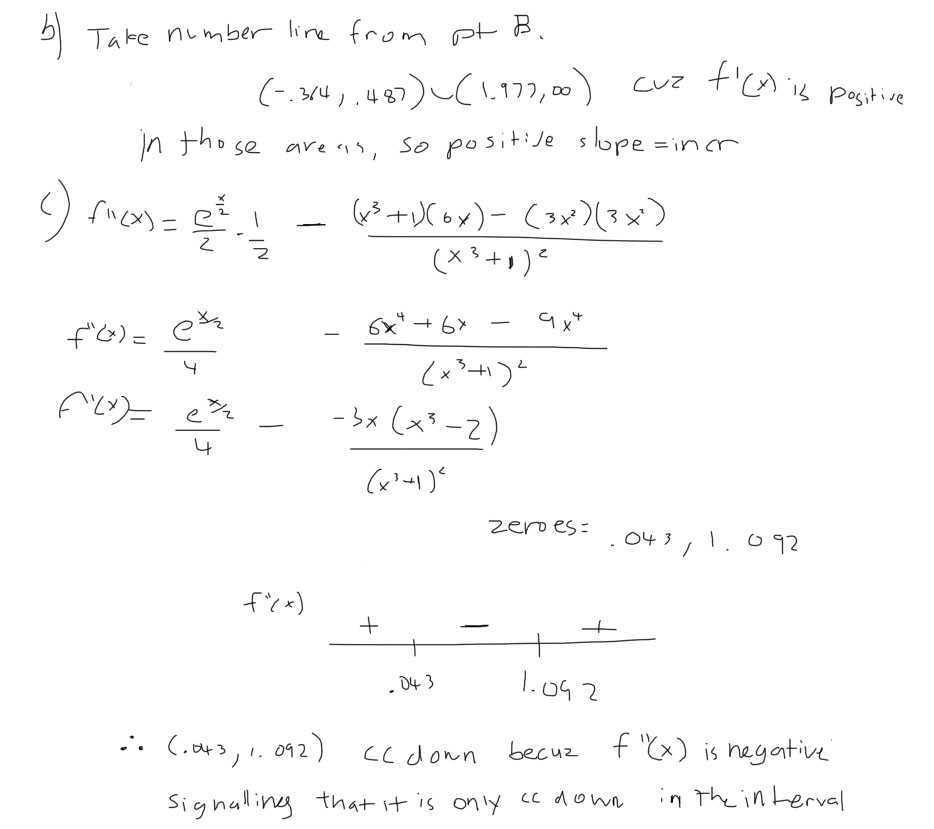 b) Take number line from pt B.
(-.364, .487) ∪ (1.977, ∞) cuz f'(x) is positive
in those areas, so positive slope = incr
c) f''(x) = e^(x/2)/2 · 1/2 - ((x³+1)(6x) - (3x²)(3x²))/(x³+1)²
f''(x) = e^(x/2)/4 - (6x⁴ + 6x - 9x⁴)/(x³+1)²
f''(x) = e^(x/2)/4 - (-3x(x³-2))/(x³+1)²
zeroes = .043, 1.092
f''(x)
+ - +
.043 1.092
∴ (.043, 1.092) cc down becuz f''(x) is negative
signalling that it is only cc down in the interval